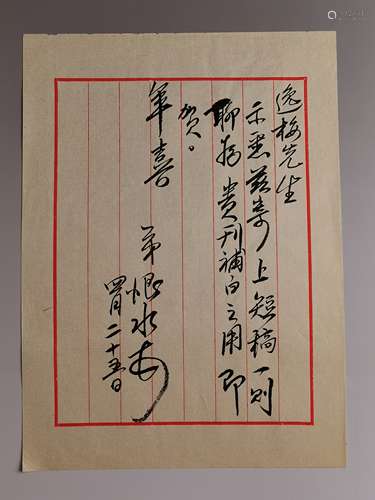 逸梅先生
示悉兹寄上短稿一则
聊为贵刊补白之用即
贺。
年喜
弟恨水
四月二十五日